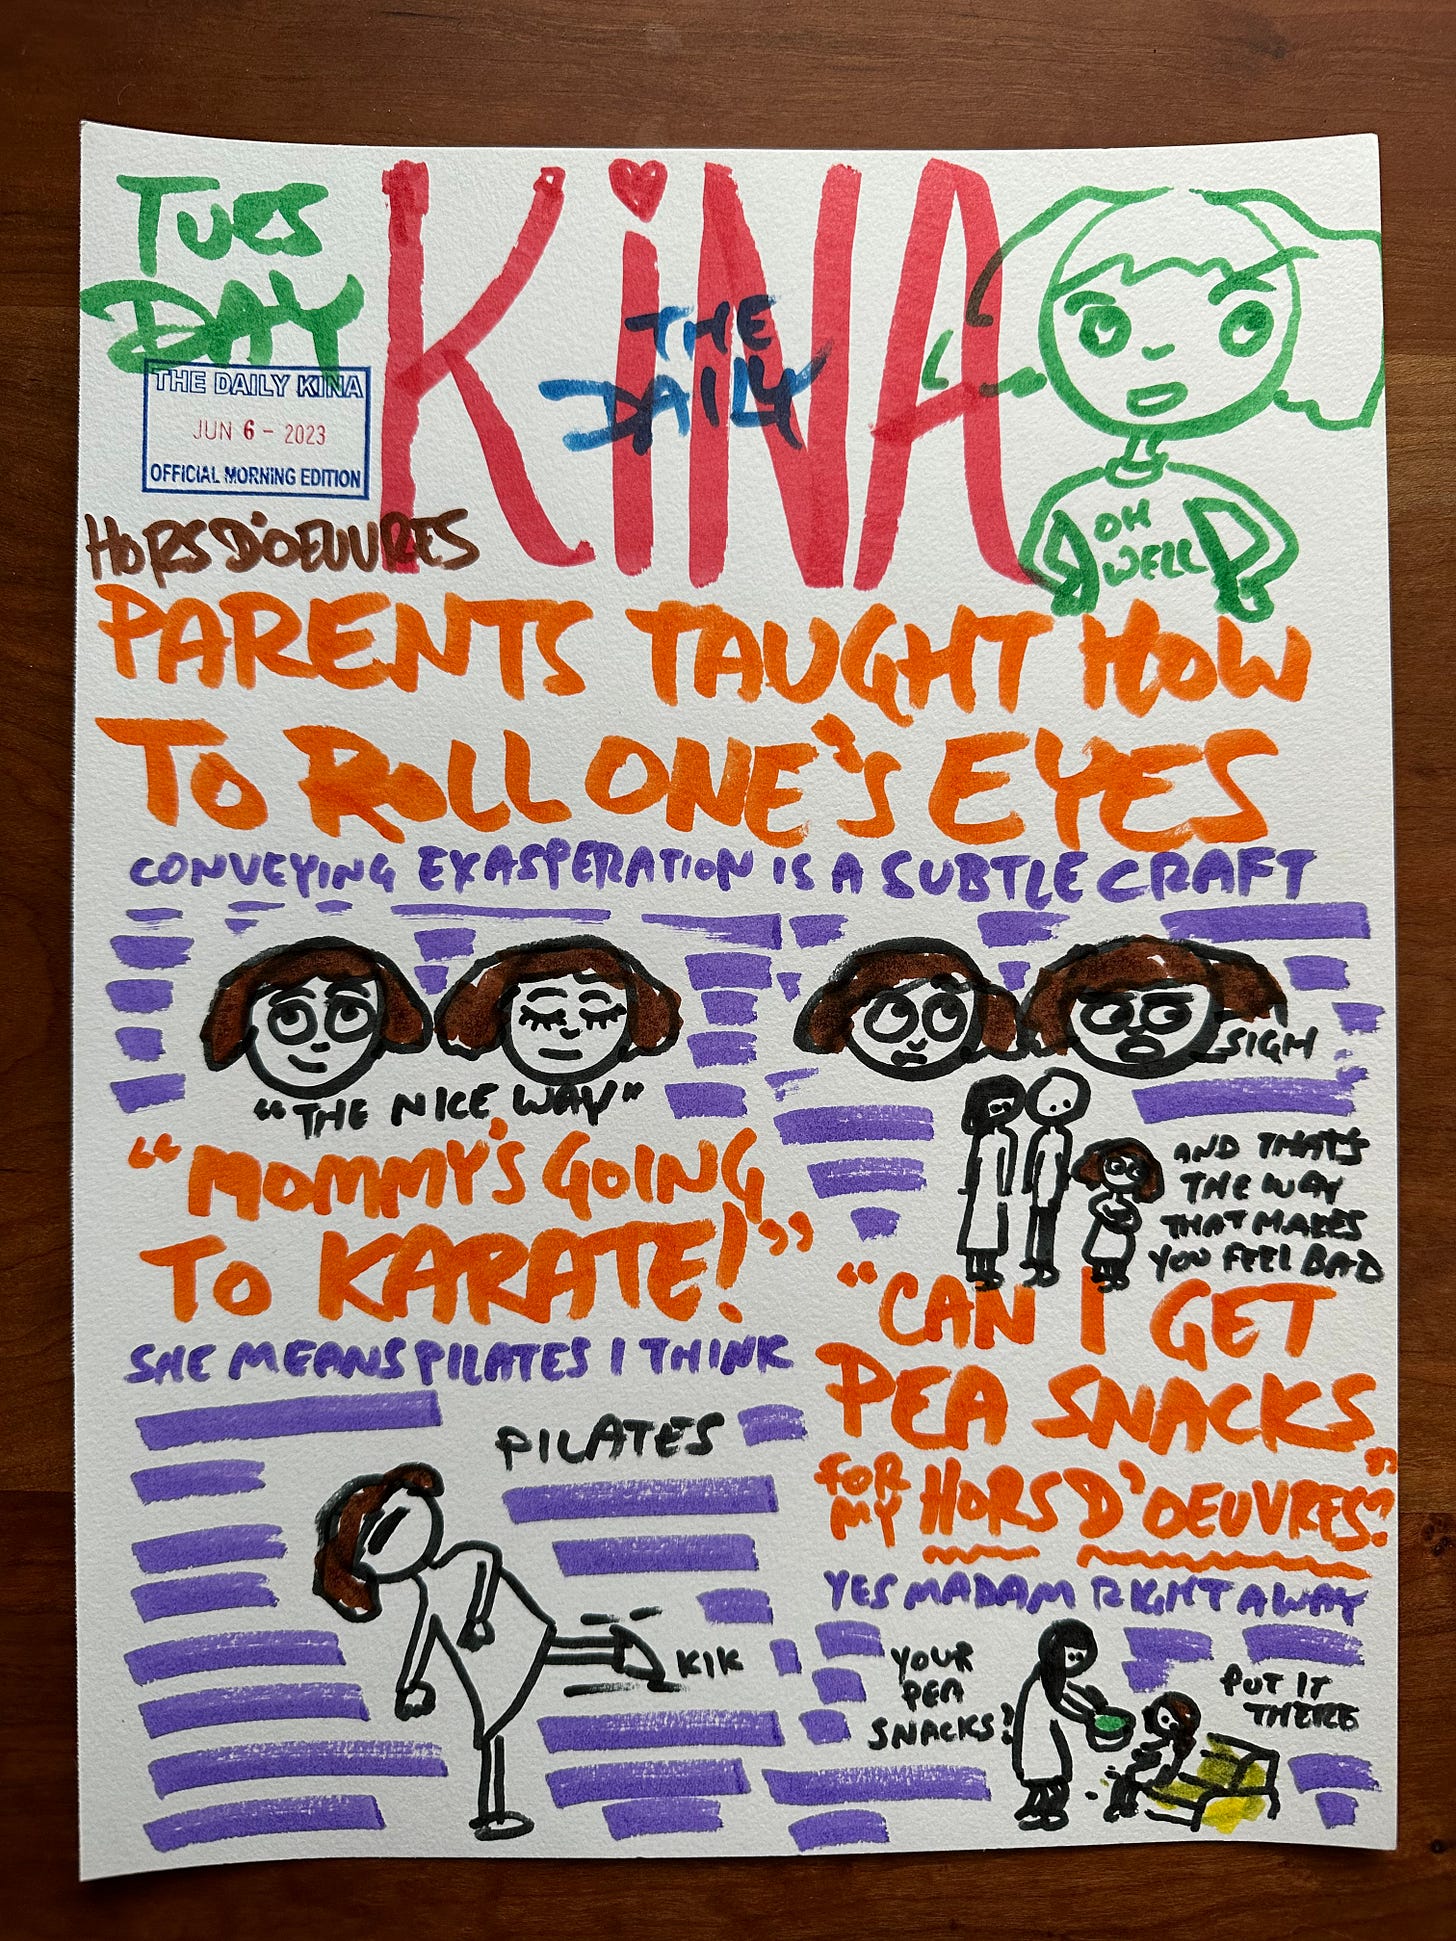 TUES
DAY
KiNA
THE
DAILY
THE DAILY KINA
JUN 6 - 2023
OFFICIAL MORNING EDITION
OH
WELL
HORS D'OEUVRES
PARENTS TAUGHT HOW
TO ROLL ONE'S EYES
CONVEYING EXASPERATION IS A SUBTLE CRAFT
"THE NICE WAY"
SIGH
AND THAT'S
THE WAY
THAT MAKES
YOU FEEL BAD
"MOMMY'S GOING
TO KARATE!"
SHE MEANS PILATES I THINK
PILATES
KIK
"CAN I GET
PEA SNACKS
FOR
MY HORS D'OEUVRES?"
YES MADAM RIGHT AWAY
YOUR
PEA
SNACKS?
PUT IT
THERE